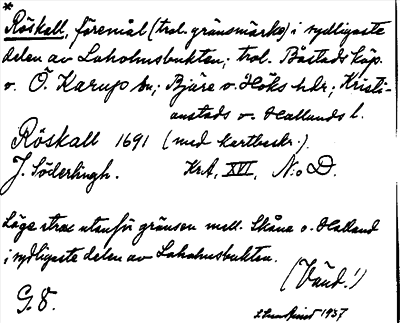 *
Röskall, föremål (trol. gränsmärke) i sydligaste
delen av Laholmsbukten; trol. Båstads köp.
o. Ö. Karups sn; Bjäre o. Höks hdr; Kristi-
anstads o. Hallands l.
Röskall 1691 (med kartbeskr.).
J. Söderlingh. KrA, XVI, N:o D.
Läge strax utanför gränsen mell. Skåne o. Halland
i sydligaste delen av Laholmsbukten.
(Vänd!)
G. S.
1937